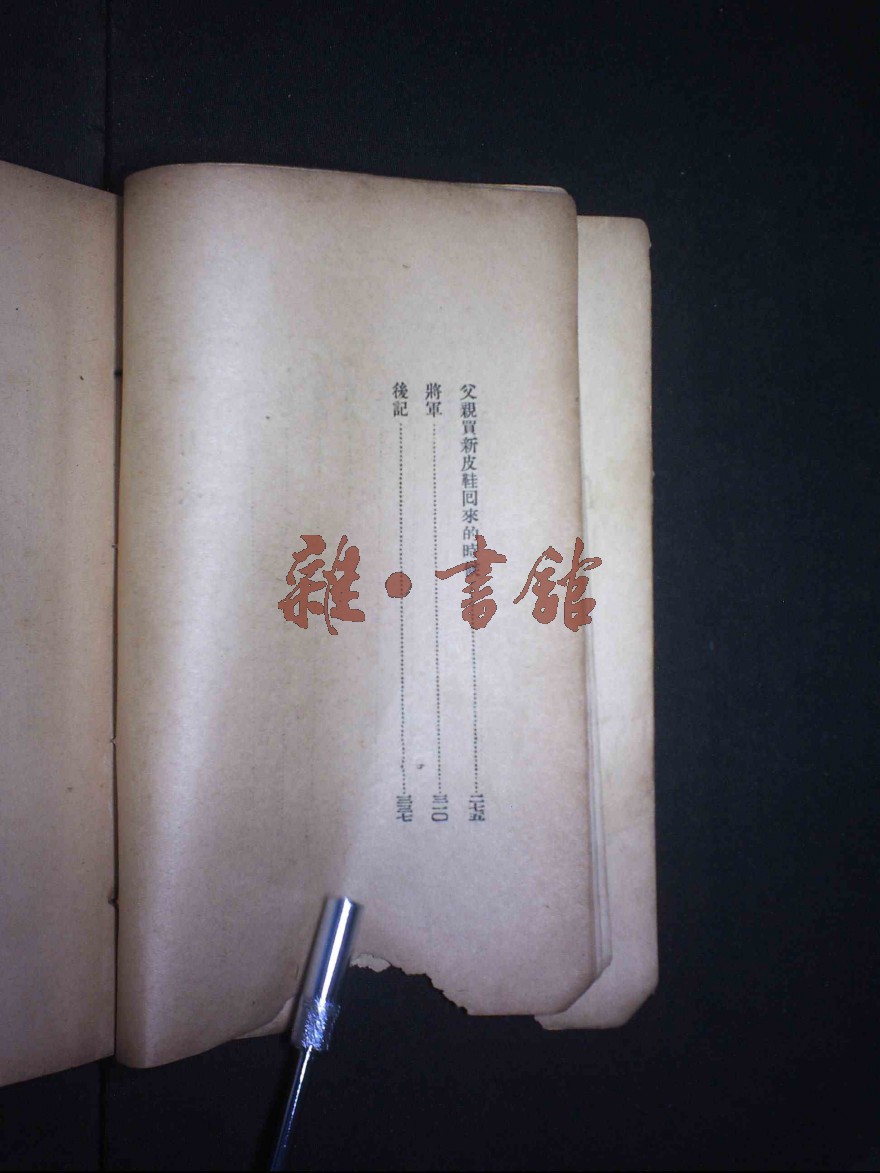 父親買新皮鞋回來的時候……二七五
將軍……三一〇
後記……三三七
雜·書館